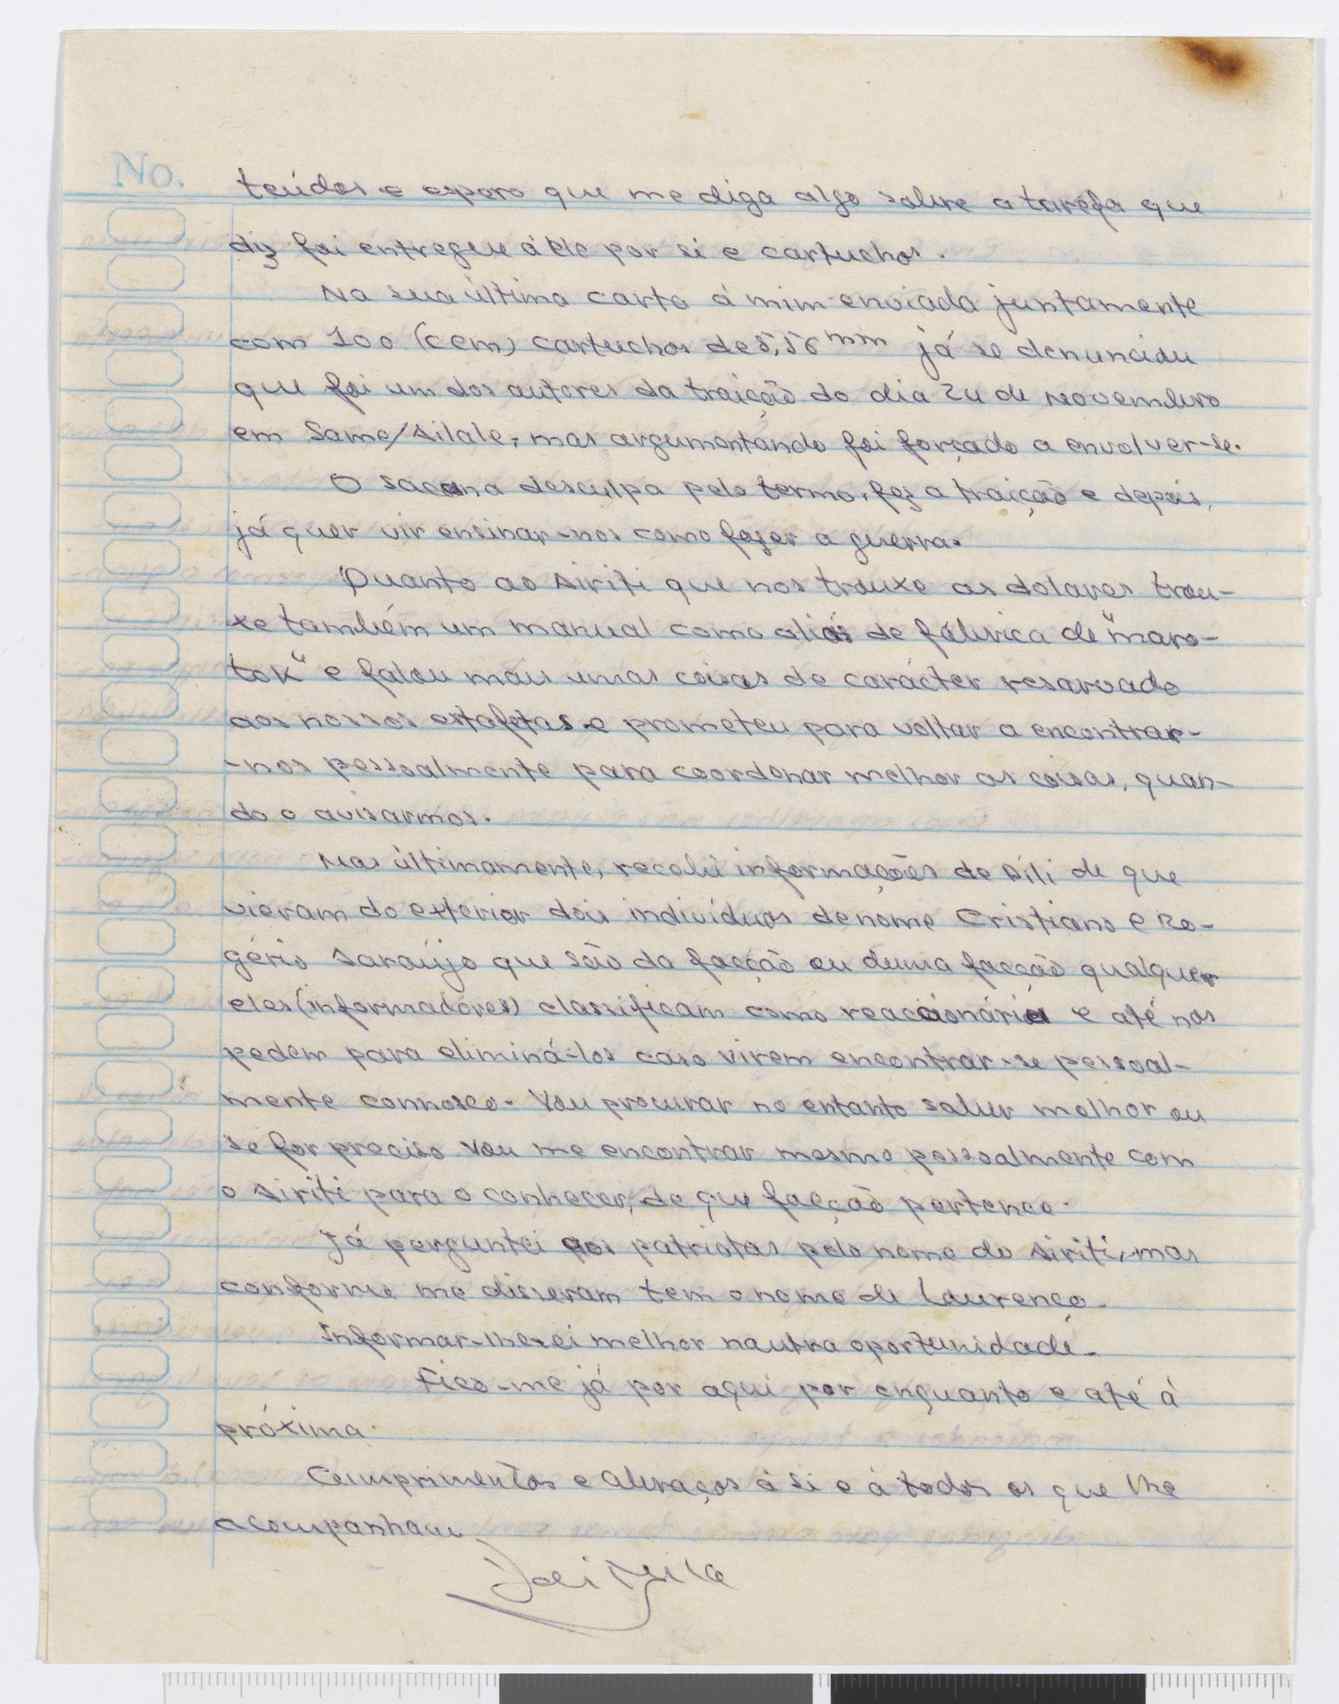 No.
teúdos e espero que me diga algo sobre a tarefa que
diz foi entregue á êle por si e cartuchos.
Na sua última carta á mim enviada juntamente
com 100 (cem) cartuchos de 5,56 mm já se denunciou
que foi um dos autores da traição do dia 24 de Novembro
em Same/Ailale, mas argumentando foi forçado a envolver-se.
O sacana desculpa pelo termo, fez a traição e depois,
já quer vir ensinar-nos como fazer a guerra.
Quanto ao Siriti que nos trouxe os dolares trou-
xe também um manual como aliás de fábrica de "maro-
tok" e falou mais umas coisas de carácter resarvado
aos nossos estafetas e prometeu para voltar a encontrar-
-nos pessoalmente para coordenar melhor as coisas, quan-
do o avisarmos.
Mas últimamente, recebi informações de Díli de que
vieram do exterior dois indivíduos de nome Cristiano e Ro-
gério Saraújo que são da facção ou duma facção qualquer
eles (informadóres) classificam como reaccionária e até nos
pedem para eliminá-los caso virem encontrar-se pessoal-
mente connosco. Vou procurar no entanto saber melhor ou
se for preciso vou me encontrar mesmo pessoalmente com
o Siriti para o conhecer, de que facção pertence.
Já perguntei aos patriotas pelo nome do Siriti, mas
conforme me disseram tem o nome de Laurenço.
Informar-lhe-ei melhor nautra oportunidade.
Fico-me já por aqui por enquanto e até á
próxima.
Cumprimentos e abraços á si e á todos os que lhe
acompanham